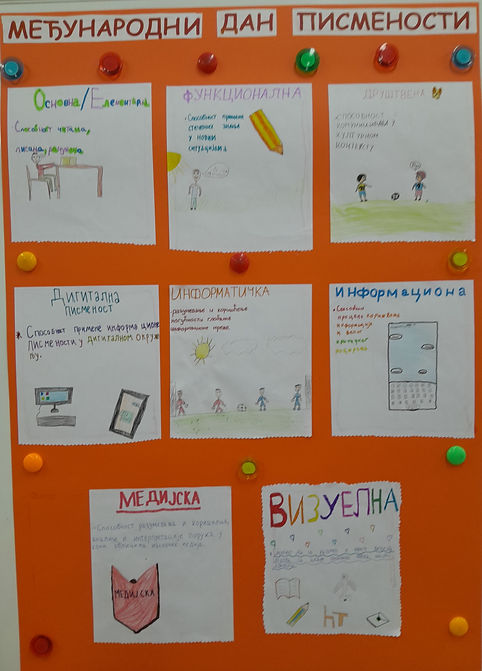 МЕЂУНАРОДНИ ДАН ПИСМЕНОСТИ
Основна/Елементарна
Способност читања,
писања, рачунања
ФУНКЦИОНАЛНА
Способност примене
стечених знања
у новим
ситуацијама
ДРУШТВЕНА
СПОСОБНОСТ
КОМУНИЦИРАЊА У
КУЛТУРНОМ
КОНТЕКСТУ
Дигитална
Писменост
Способност примене информационе
писмености у дигиталном окруже
њу.
ИНФОРМАТИЧКА
разумевање и коришћење
могућности глобалне
мреже
ИНФОРМАЦИОНА
Способност
процене коришћења
информација
и
МЕДИЈСКА
Способност разумевања и коришћења,
анализе и интерпретације порука у
медија
МЕДИЈСКА
ВИЗУЕЛНА